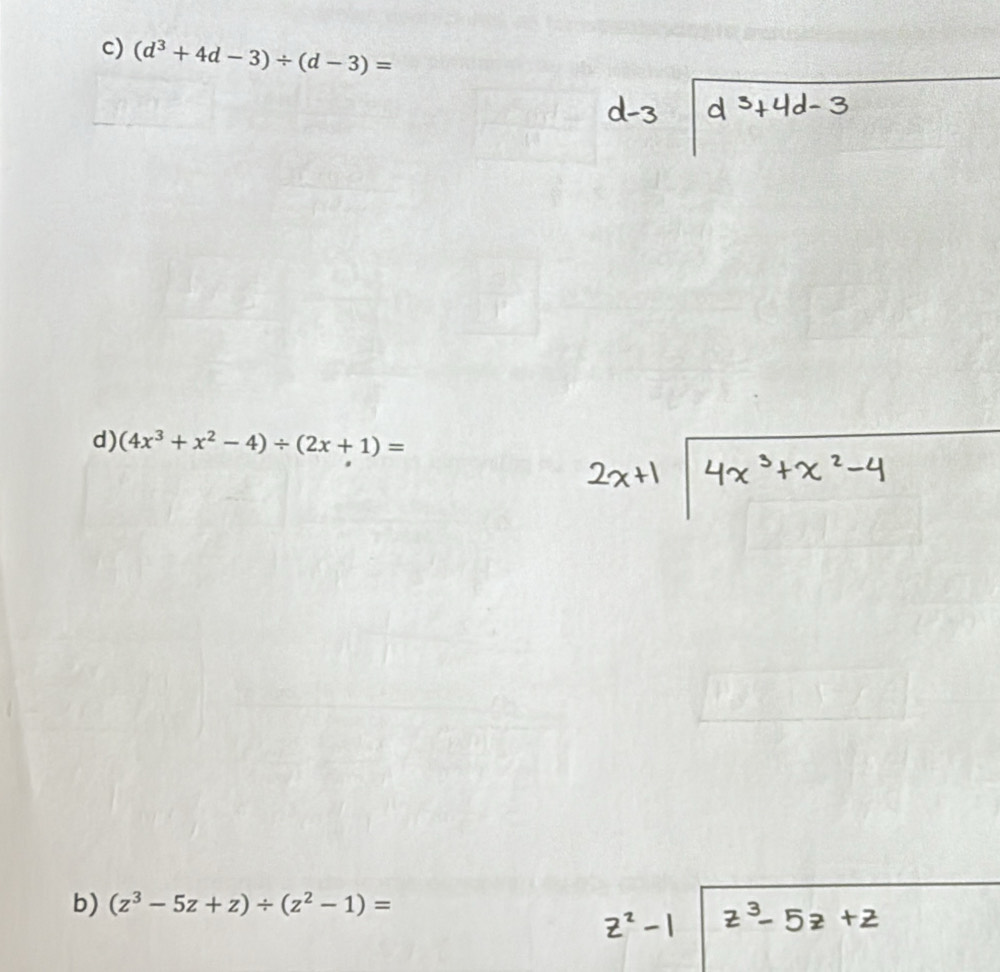 c) (d³ + 4d − 3) ÷ (d − 3) =
d-3 d³+4d-3
d)(4x³ + x² − 4) ÷ (2x + 1) =
2x+1 4x³+x²-4
b) (z³ − 5z + z) ÷ (z² − 1) =
z²-1 z³-5z+z